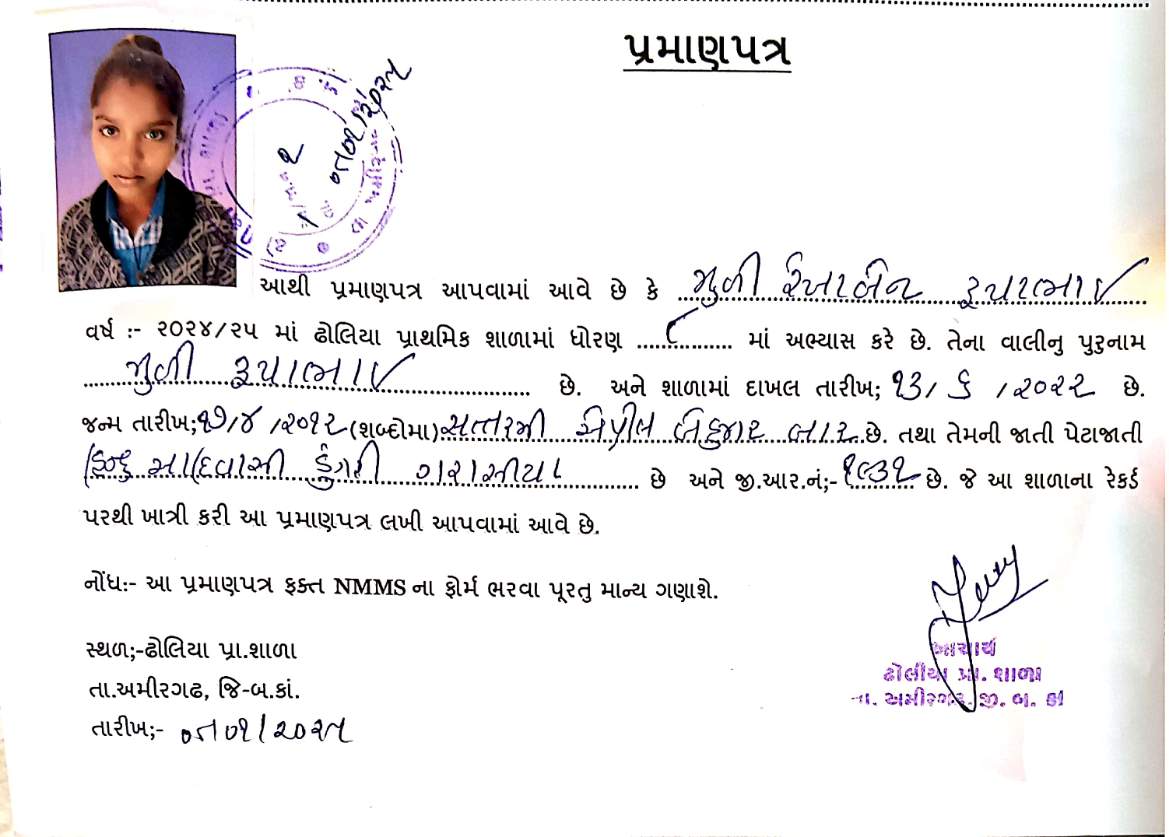 પ્રમાણપત્ર
આથી પ્રમાણપત્ર આપવામાં આવે છે કે મુળી રેખાબેન રૂપાભાઈ
વર્ષ :- ૨૦૨૪/૨૫ માં ઢોલિયા પ્રાથમિક શાળામાં ધોરણ ૮ માં અભ્યાસ કરે છે. તેના વાલીનુ પુરુનામ
મુળી રૂપાભાઈ છે. અને શાળામાં દાખલ તારીખ; ૧૩/ ૬ /૨૦૨૨ છે.
જન્મ તારીખ;૧૭/૪/૨૦૧૨(શબ્દોમા) સત્તરમી એપ્રીલ બેહજાર બાર છે. તથા તેમની જાતી પેટાજાતી
હિન્દુ આદિવાસી ડુંગરી ગરાસીયા છે અને જી.આર.નં;- ૧૮૩૧ છે. જે આ શાળાના રેકર્ડ
પરથી ખાત્રી કરી આ પ્રમાણપત્ર લખી આપવામાં આવે છે.
નોંધઃ- આ પ્રમાણપત્ર ફક્ત NMMS ના ફોર્મ ભરવા પૂરતુ માન્ય ગણાશે.
સ્થળ;-ઢોલિયા પ્રા.શાળા
તા.અમીરગઢ, જિ-બ.કાં.
તારીખ;-
આચાર્ય
ઢોલીયા પ્રા. શાળા
તા. અમીરગઢ.જી. બ. કાં